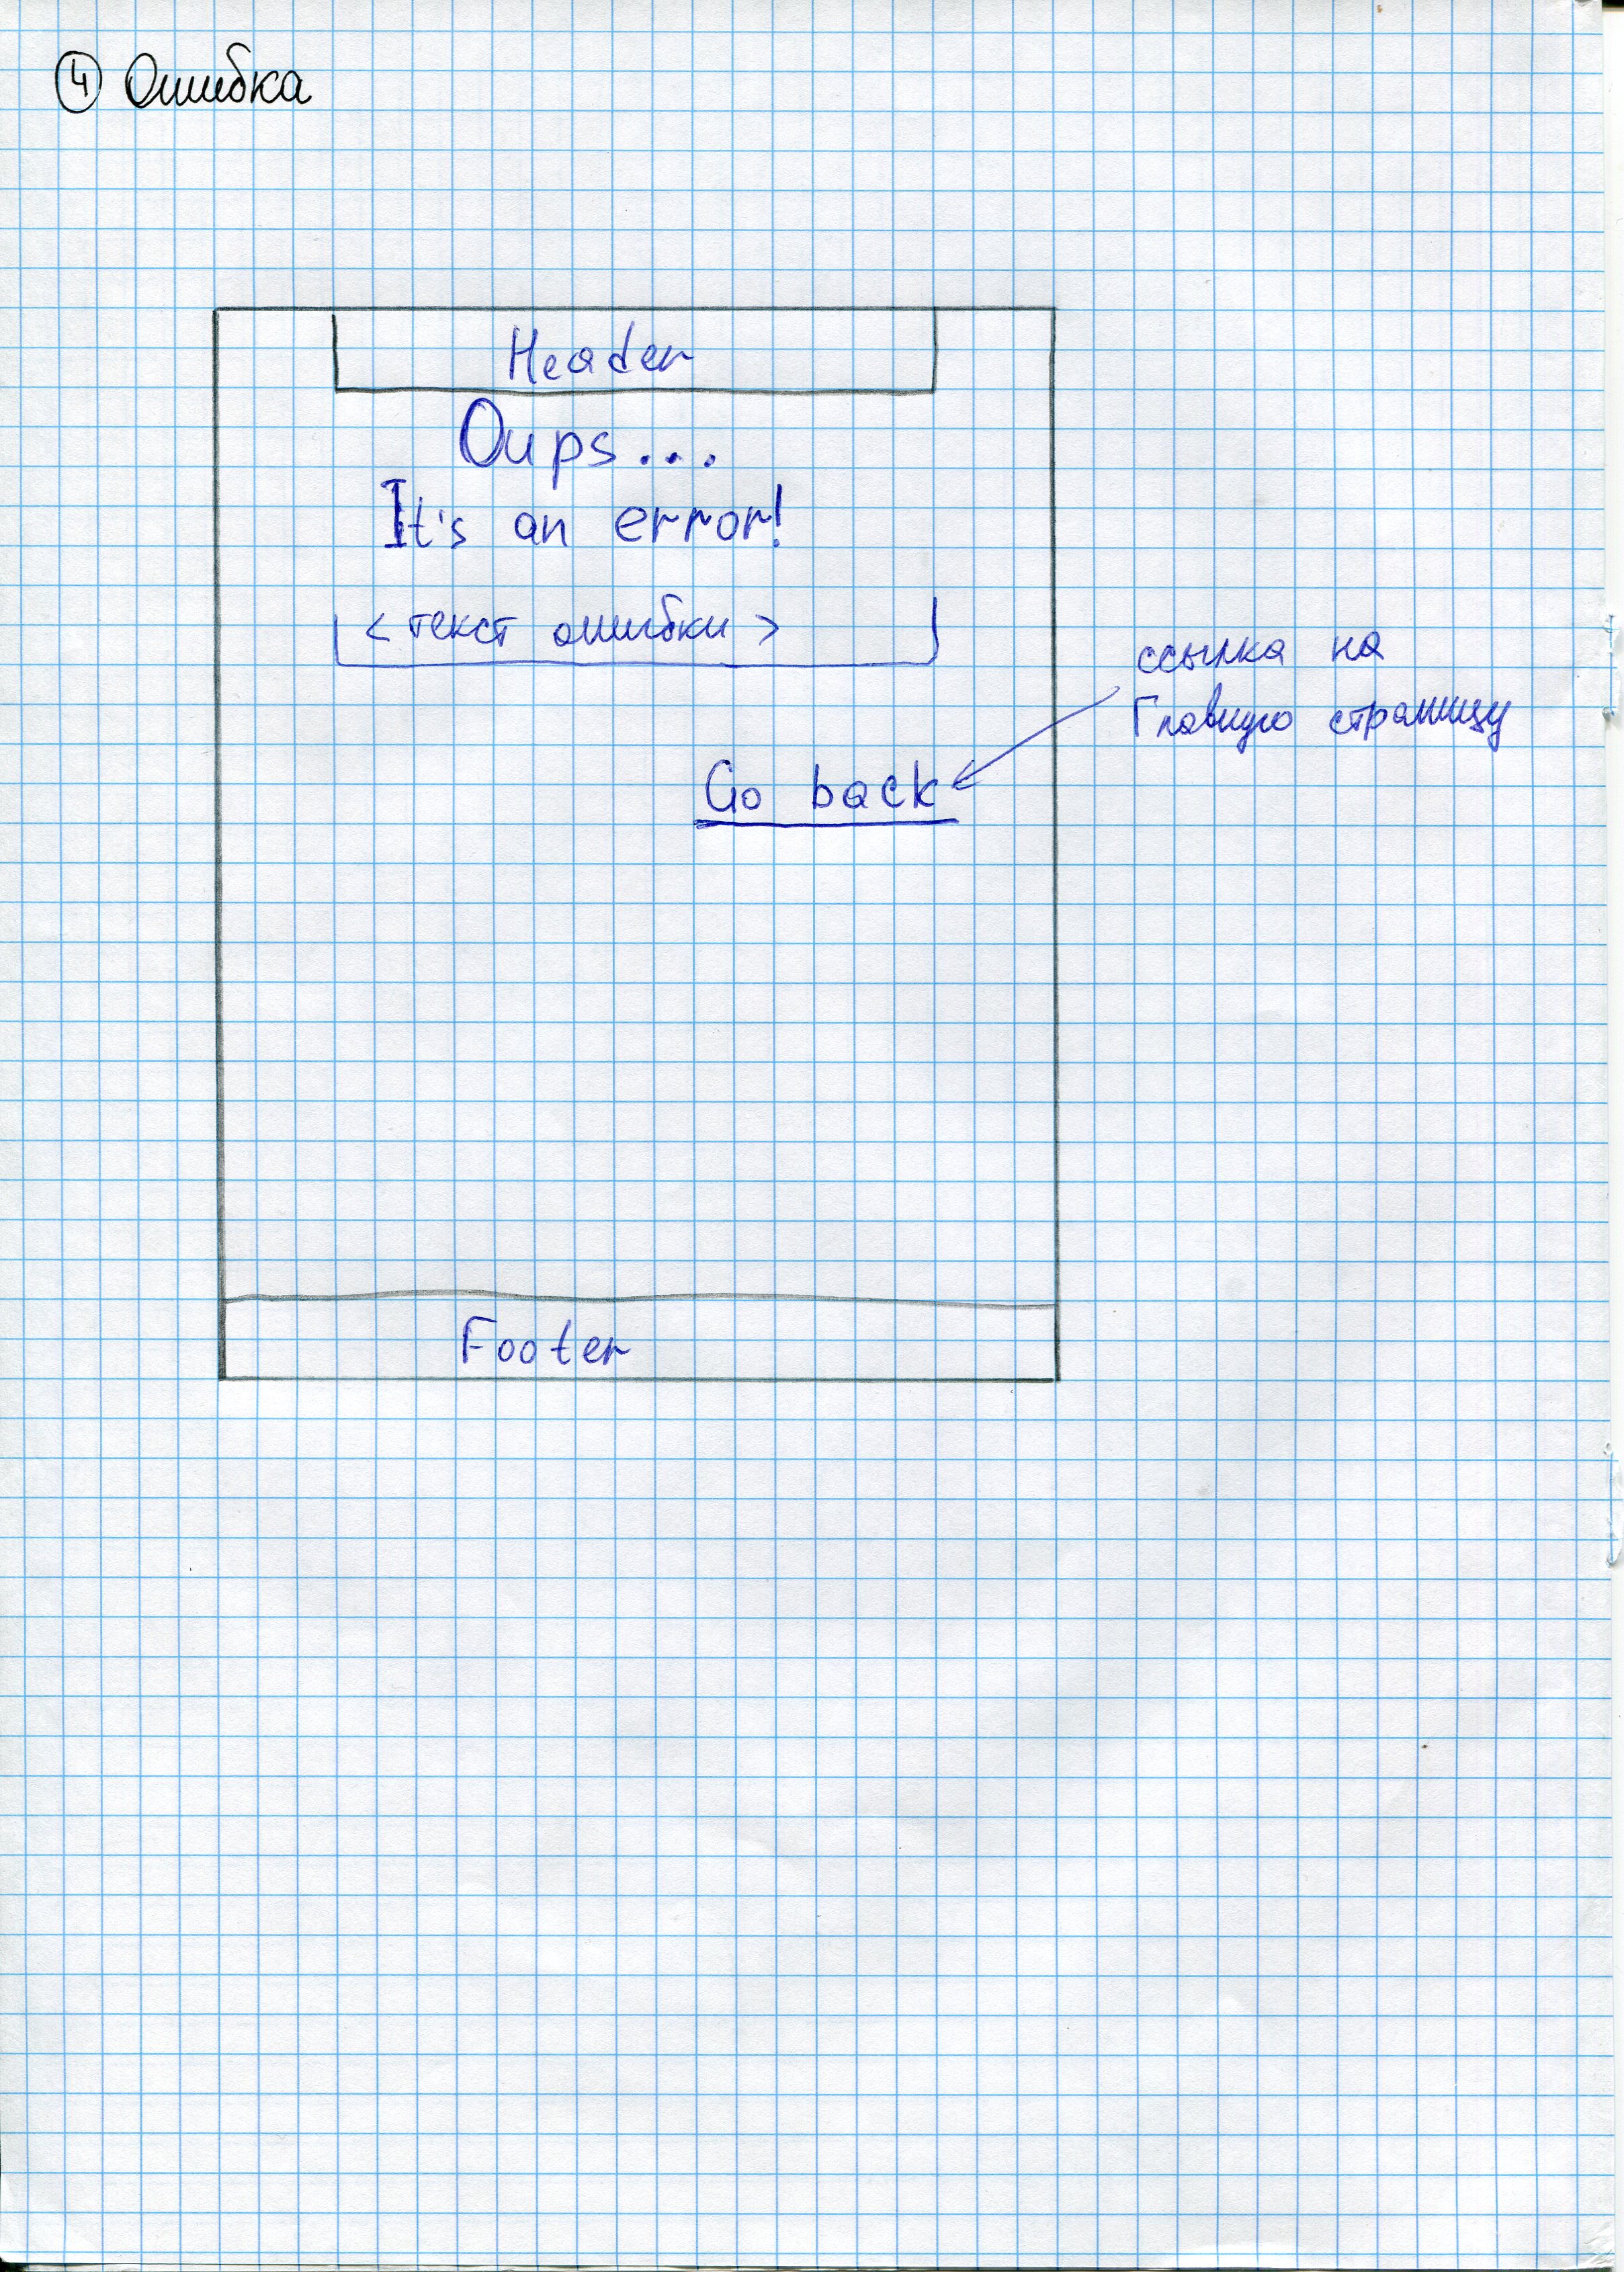 4 Ошибка
Header
Oups...
It's an error!
<текст ошибки>
ссылка на
Главную страницу
Go back
Footer